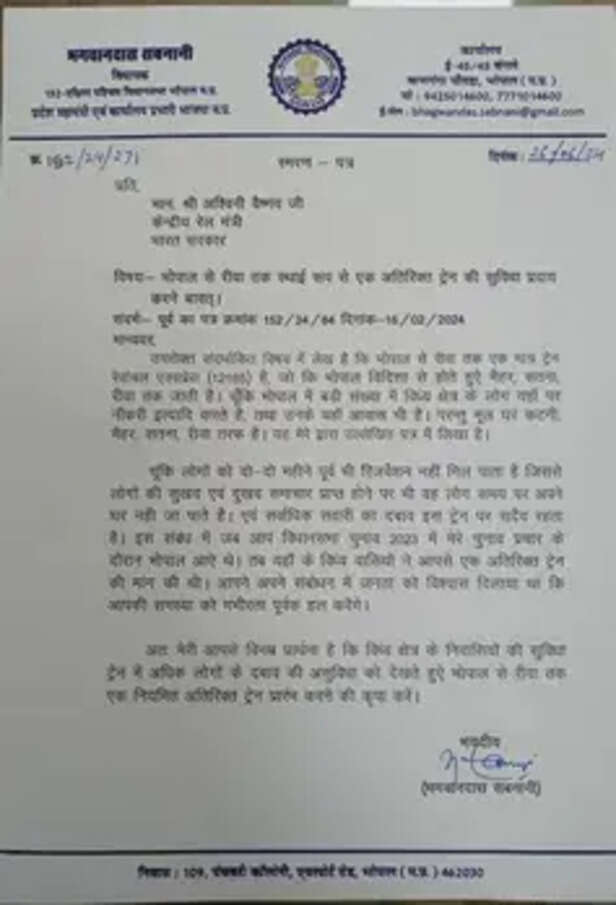 भगवानदास सबनानी
विधायक
152-दक्षिण पश्चिम विधानसभा भोपाल म.प्र.
प्रदेश महामंत्री एवं कार्यालय प्रभारी भाजपा म.प्र.
कार्यालय
ई-45/45 बंगले
भोपाल ( म.प्र. )
मो : 9425014600, 7771014600
ई-मेल : bhagwandas.sabnani@gmail.com
क्र. 152/24/271
स्मरण – पत्र
दिनांक :
प्रति,
मान. श्री अश्विनी वैष्णव जी
केन्द्रीय रेल मंत्री
भारत सरकार
विषय– भोपाल से रीवा तक स्थाई रूप से एक अतिरिक्त ट्रेन की सुविधा प्रदाय
करने बाबत्।
संदर्भ– पूर्व का पत्र क्रमांक 152/24/84 दिनांक–16/02/2024
मान्यवर,
उपरोक्त संदर्भांकित विषय में लेख है कि भोपाल से रीवा तक एक मात्र ट्रेन
रेवांचल एक्सप्रेस (12185) है, जो कि भोपाल विदिशा से होते हुऐ मैहर, सतना,
रीवा तक जाती है। चूँकि भोपाल में बड़ी संख्या में विंध्य क्षेत्र के लोग यहाँ पर
नौकरी इत्यादि करते है, तथा उनके यहाँ आवास भी है। परन्तु मूल घर कटनी,
मैहर, सतना, रीवा तरफ है। यह मेरे द्वारा उल्लेखित पत्र में लिखा है।
चूंकि लोगों को दो-दो महीने पूर्व भी रिजर्वेशन नहीं मिल पाता है जिससे
लोगों की सुखद एवं दुखद समाचार प्राप्त होने पर भी वह लोग समय पर अपने
घर नही जा पाते है। एवं सर्वाधिक सवारी का दबाव इस ट्रेन पर सदैव रहता
है। इस संबंध में जब आप विधानसभा चुनाव 2023 में मेरे चुनाव प्रचार के
दौरान भोपाल आऐ थे। तब यहाँ के विंध्य वासियों ने आपसे एक अतिरिक्त ट्रेन
की मांग की थी। आपने अपने संबोधन में जनता को विश्वास दिलाया था कि
आपकी समस्या को गंभीरता पूर्वक हल करेंगे।
अतः मेरी आपसे विनम्र प्रार्थना है कि विंध्य क्षेत्र के निवासियों की सुविधा
ट्रेन में अधिक लोगों के दबाव की असुविधा को देखते हुऐ भोपाल से रीवा तक
एक नियमित अतिरिक्त ट्रेन प्रारंभ करने की कृपा करें।
भवदीय
(भगवानदास सबनानी)
निवास : 109, पंचवटी कॉलोनी, एयरपोर्ट रोड, भोपाल ( म.प्र. ) 462030